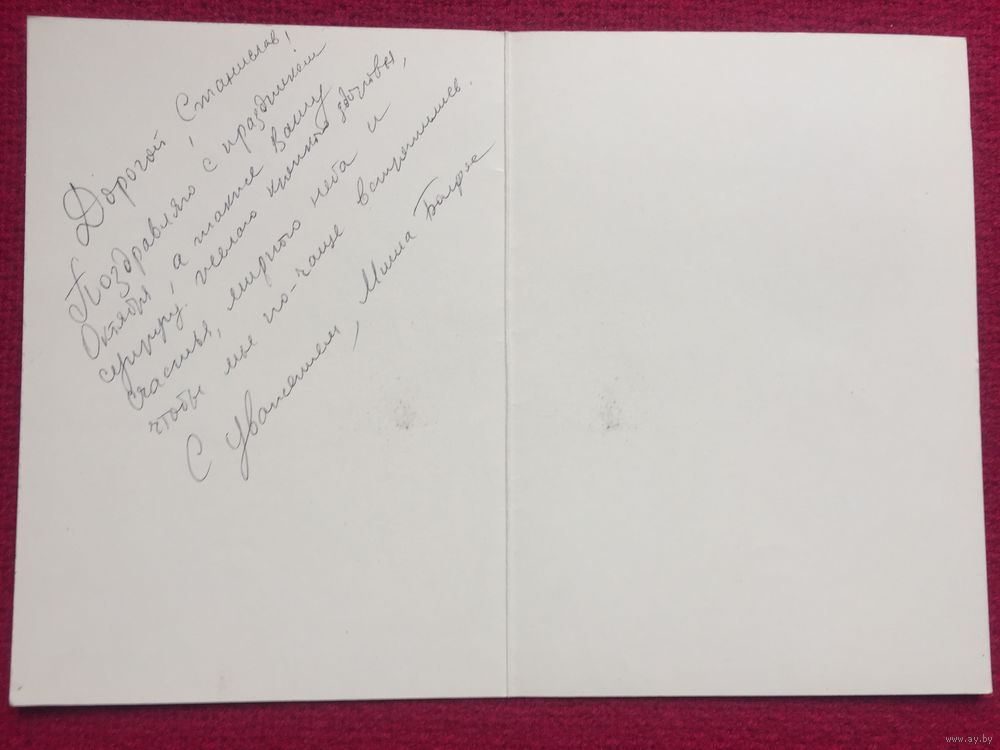 Дорогой, Станислав!
Поздравляю с праздником
Октября, а также Вашу
супругу. желаю крепкого здоровья,
счастья, мирного неба и
чтобы мы по-чаще встречались.
С Уважением, Миша
www.ay.by